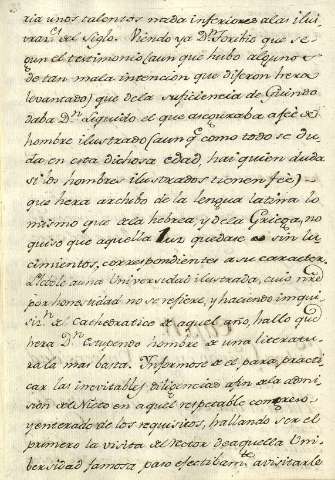 ria unos talentos nada inferiores a las ilui
del siglo. Viendo ya Dn Toribio que se
gun el testimonio (aunque hubo algunos
de tan mala intencion que dijeron hera
levantado) que de la suficiencia de Guindo
daba Dn Liquido el que aseguraba a fee de
hombre ilustrado (aunq como todo se du
da en esta dichosa edad, hai quien duda
si los hombres ilustrados tienen fee)
que hera archibo de la lengua latina lo
mismo que de la hebrea, y de la Griega, no
quiso que aquella luz quedase sin lu
cimientos, correspondientes a su caracter.
a una Universidad ilustrada, cuio nre
por honestidad no se refiere, y haciendo inqui
sizn del Cathedratico de aquel año, hallo que
hera Dn Estupendo hombre de una literatu
ra la mas basta. Informose de el para practi
car las inevitables diligencias a fin de la admi
sion del Nieto en aquel respetable congreso
y enterado de los requisitos, hallando ser el
primero la visita del Rector de aquella Uni
bersidad famosa, paso efectibamte a visitarle